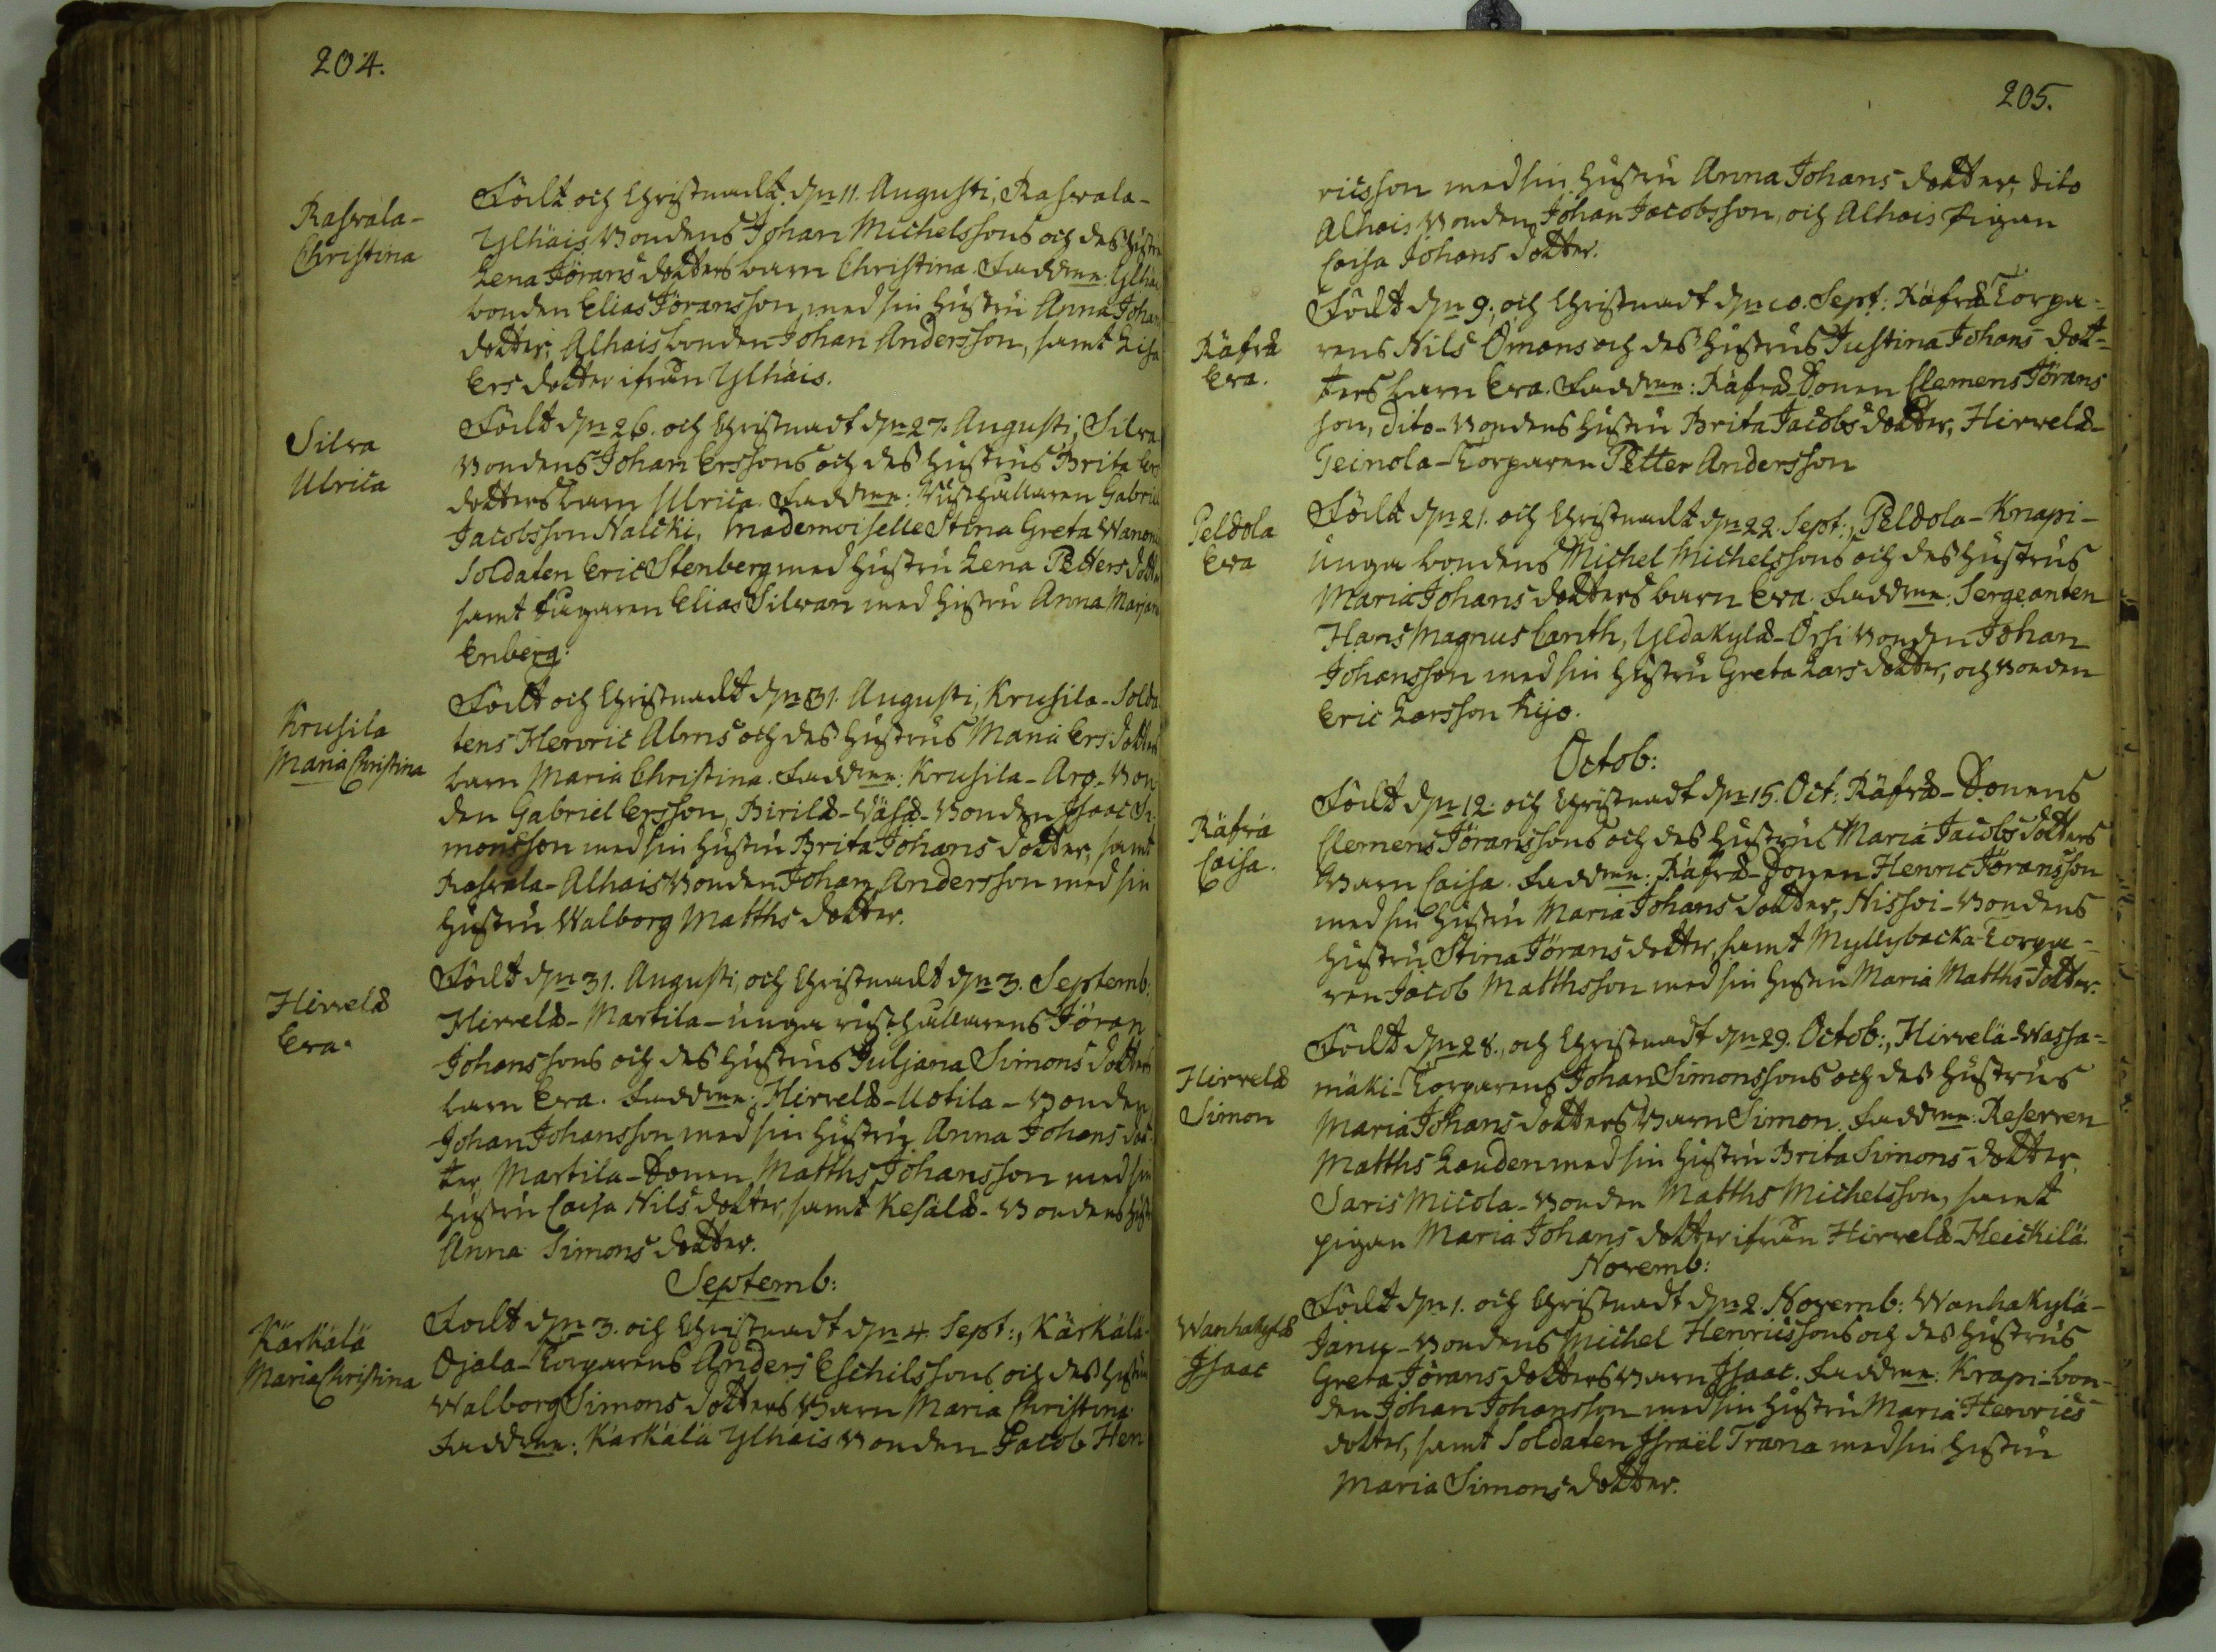 204.
Raswala-
Christina
Födt och Christnadt d̄n 11. Augusti, Raswala-
Ylhäis Bondens Johan Michelssons och des hustru
Lena Jörans dotters barn Christina. Faddrar: Ylhäi
bonden Elias Jöransson, med sin hustru Anna Johans
dotter, Alhais bonden Johan Andersson, samt Lisa
Ers dotter ifrån Ylhäis.
Silva
Ulrica
Födt d̄n 26. och Christnadt d̄n 27. Augusti, Silva
Bondens Johan Erssons och des hustrus Brita Ers
dotters barn Ulrica. Faddrar: Rusthållaren Gabriel
Jacobsson Nalcki, Mademoiselle Stina Greta Wanoni
Soldaten Eric Stenberg med hustru Lena Petters dotter
samt Eric Elias Silwan med hustru Anna Marjana
Enberg.
Krusila
Maria Christina
Födt och Christnadt d̄n 31. Augusti, Krusila-Solda
tens Henric Alms och des hustrus Maria Ers dotters
barn Maria Christina. Faddrar: Krusila-Aro-Bon
den Gabriel Ersson, Birilä-Wäsä-Bonden Isaac Si-
monsson med sin hustru Brita Johans dotter, samt
Raswala-Alhais Bonden Johan Andersson med sin
hustru Walborg Matths dotter.
Hirvelä
Eva.
Födt d̄n 31. Augusti, och Christnadt d̄n 3. Septemb:
Hirvelä-Martila-unga rusthållarens Jöran
Johanssons och des hustrus Juljana Simons dotters
barn Eva. Faddrar: Hirvelä-Uotila-Bonden
Johan Johansson med sin hustru Anna Johans dot-
ter, Martila-Sonen Matths Johansson med sin
hustru Caisa Nils dotter, samt Kesälä-Bondens hustru
Anna Simons dotter.
Septemb:
Kärkälä
Maria Christina
Födt d̄n 3. och Christnadt d̄n 4. Sept:, Kärkälä-
Ojala-Torparens Anders Eschilssons och des hustru
Walborg Simons dotters Barn Maria Christina.
Faddrar: Kärkälä Ylhäis Bonden Jacob Hen
205.
ricsson med sin hustru Anna Johans dotter, dito
Alhais Bonden Johan Jacobsson, och Alhais Pigan
Caisa Johans dotter.
Räfvä
Eva.
Födt d̄n 9., och Christnadt d̄n 10. Sept: Räfvä Torpa-
rens Nils Ömans och des hustrus Justina Johans-dot-
ters barn Eva. Faddrar: Räfvä-Sonen Clemens Jörans
son, dito-Bondens hustru Brita Jacobs dotter, Hirvelä-
Peinola-Torparen Petter Andersson
Peldola
Eva
Födt d̄n 21. och Christnadt d̄n 22. Sept:, Peldola-Knapi-
unga bondens Michel Michelssons och des hustrus
Maria Johans dotters barn Eva. Faddrar: Sergeanten
Hans Magnus Canth, Yldakylä-Orsi Bonden Johan
Johansson med sin hustru Greta Lars dotter, och Bonden
Eric Larsson Kijo.
Octob:
Räfvä
Caisa.
Födt d̄n 12. och Christnadt d̄n 15. Oct: Räfvä-Sonens
Clemens Jöranssons och des hustrus Maria Jacobs dotters
Barn Caisa. Faddrar: Räfvä-Sonen Henric Jöransson
med sin hustru Maria Johans dotter, Nissoi-Bondens
hustru Stina Jörans dotter, samt Myllybacka-Torpa-
ren Jacob Matthsson med sin hustru Maria Matths-dotter.
Hirvelä
Simon
Födt d̄n 28., och Christnadt d̄n 29. Octob:, Hirvelä-Wassa-
mäki-Torparens Johan Simonssons och des hustrus
Maria Johans dotters Barn Simon. Faddrar: Reserven
Matths Lauden med sin hustru Brita Simons-dotter,
Saris Micola-Bonden Matths Michelsson, samt
pigan Maria Johans dotter ifrån Hirvelä-Heickilä.
Novemb:
Wanhakylä
Isaac
Födt d̄n 1. och Christnadt d̄n 2. Novemb: Wanhakylä-
Janu-Bondens Michel Henricssons och des hustrus
Greta Jörans dotters Barn Isaac. Faddrar: Krapi-bon-
den Johan Johansson med sin hustru Maria Henrics
dotter, samt Soldaten Israël Trana med sin hustru
Maria Simons dotter.